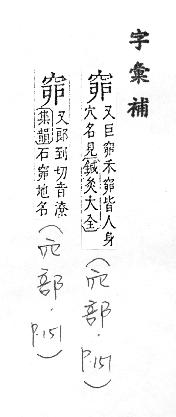 字彙補
窌
又巨窌禾窌皆人身
穴名見鍼灸大全
(穴部.P.151)
窌
又郎到切音潦
集韻石窌地名
(穴部.P.151)